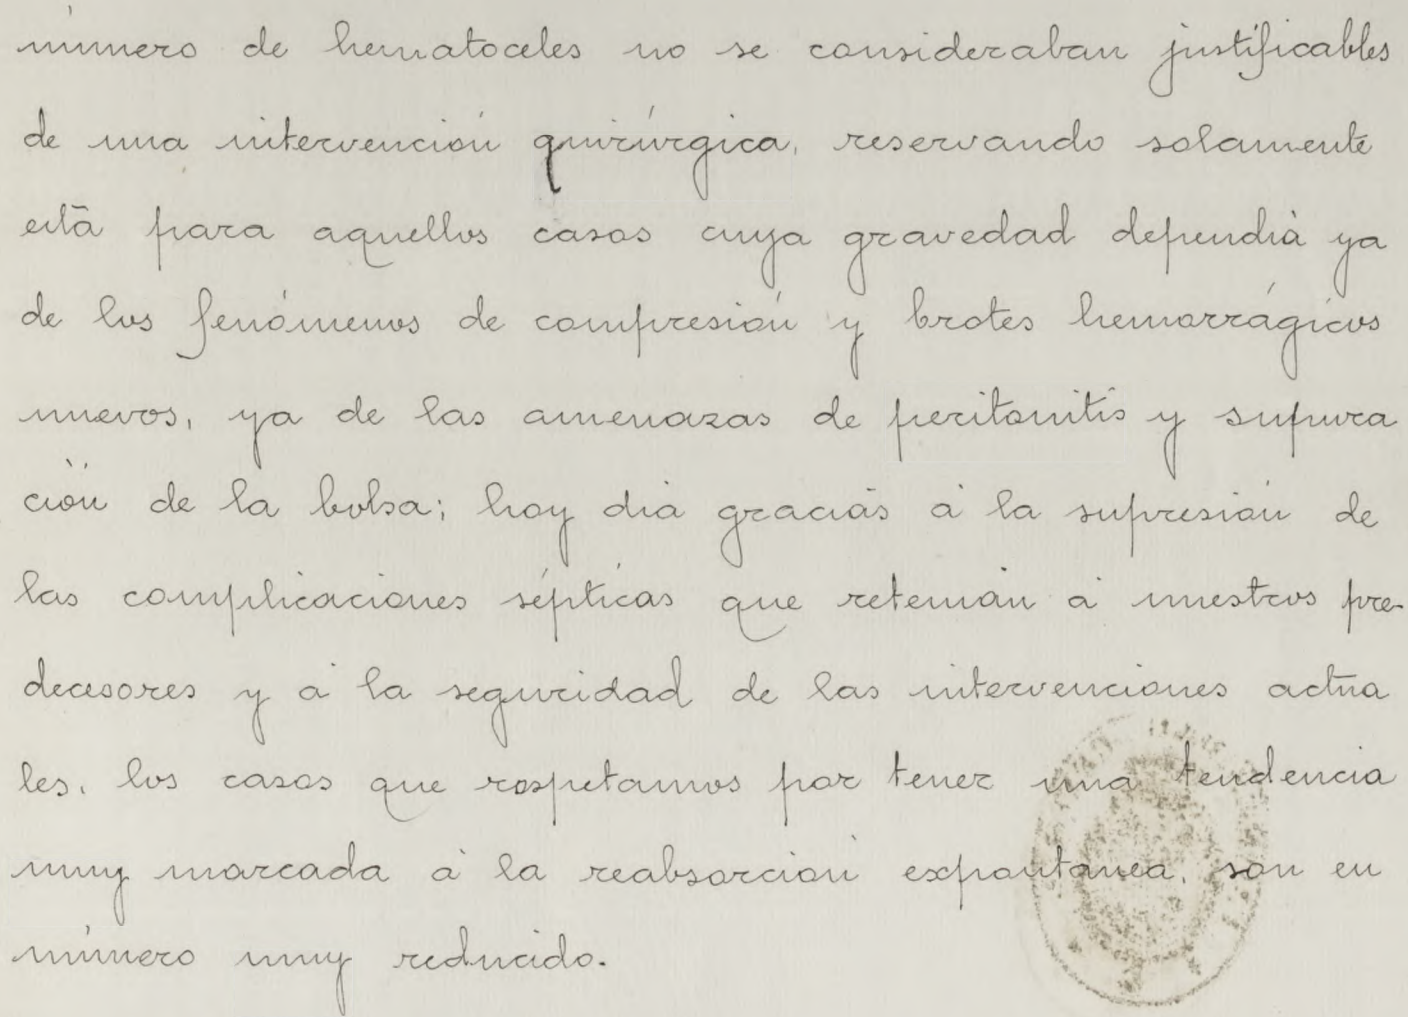 número de hematoceles no se consideraban justificables
de una intervención quirúrgica, reservando solamente
está para aquellos casos cuya gravedad dependía ya
de los fenómenos de compresión y brotes hemorrágicos
nuevos, ya de las amenazas de peritonitis y supura
ción de la bolsa; hoy dia gracias á la supresión de
las complicaciones sépticas que retenían á nuestros pre-
decesores y á la seguridad de las intervenciones actua
les, los casos que respetamos por tener una tendencia
muy marcada á la reabsorción expontánea, son en
número muy reducido.